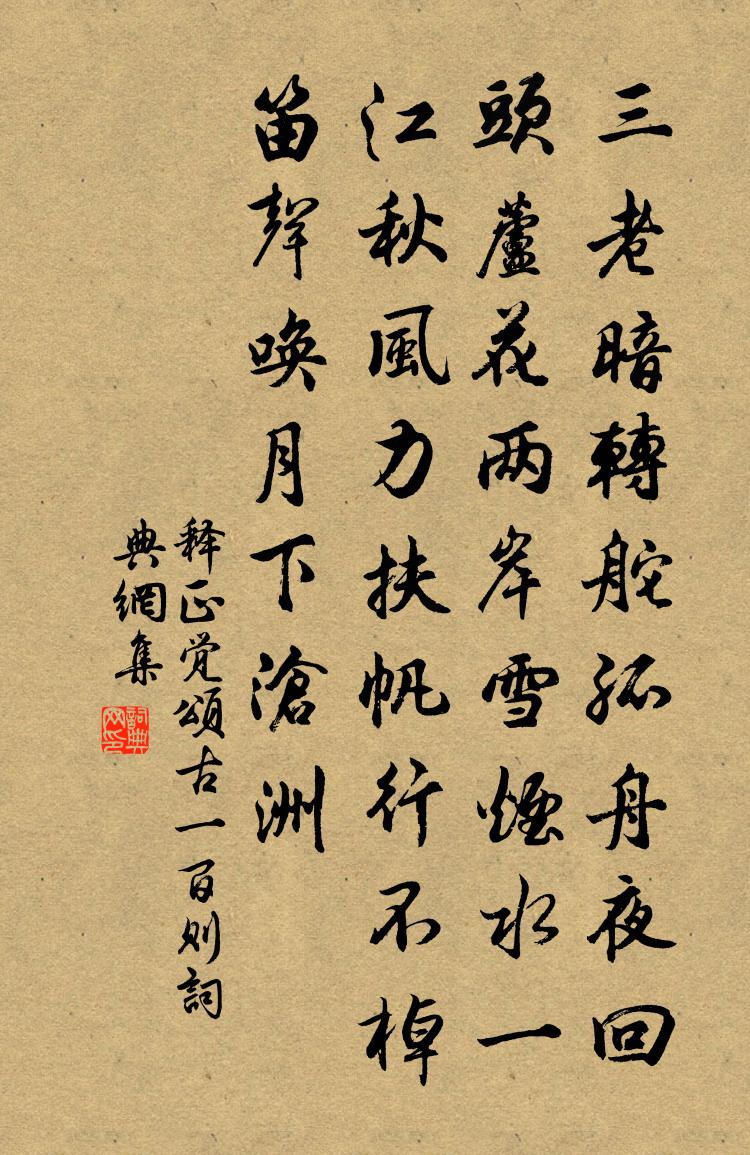 三老暗轉舵孤舟夜回
頭蘆花两岸雪煙水一
江秋風力扶帆行不棹
笛聲唤月下滄洲
释正覺頌古一百則詞
典網集
詞典网印